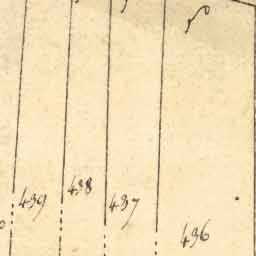 439
438
437
436